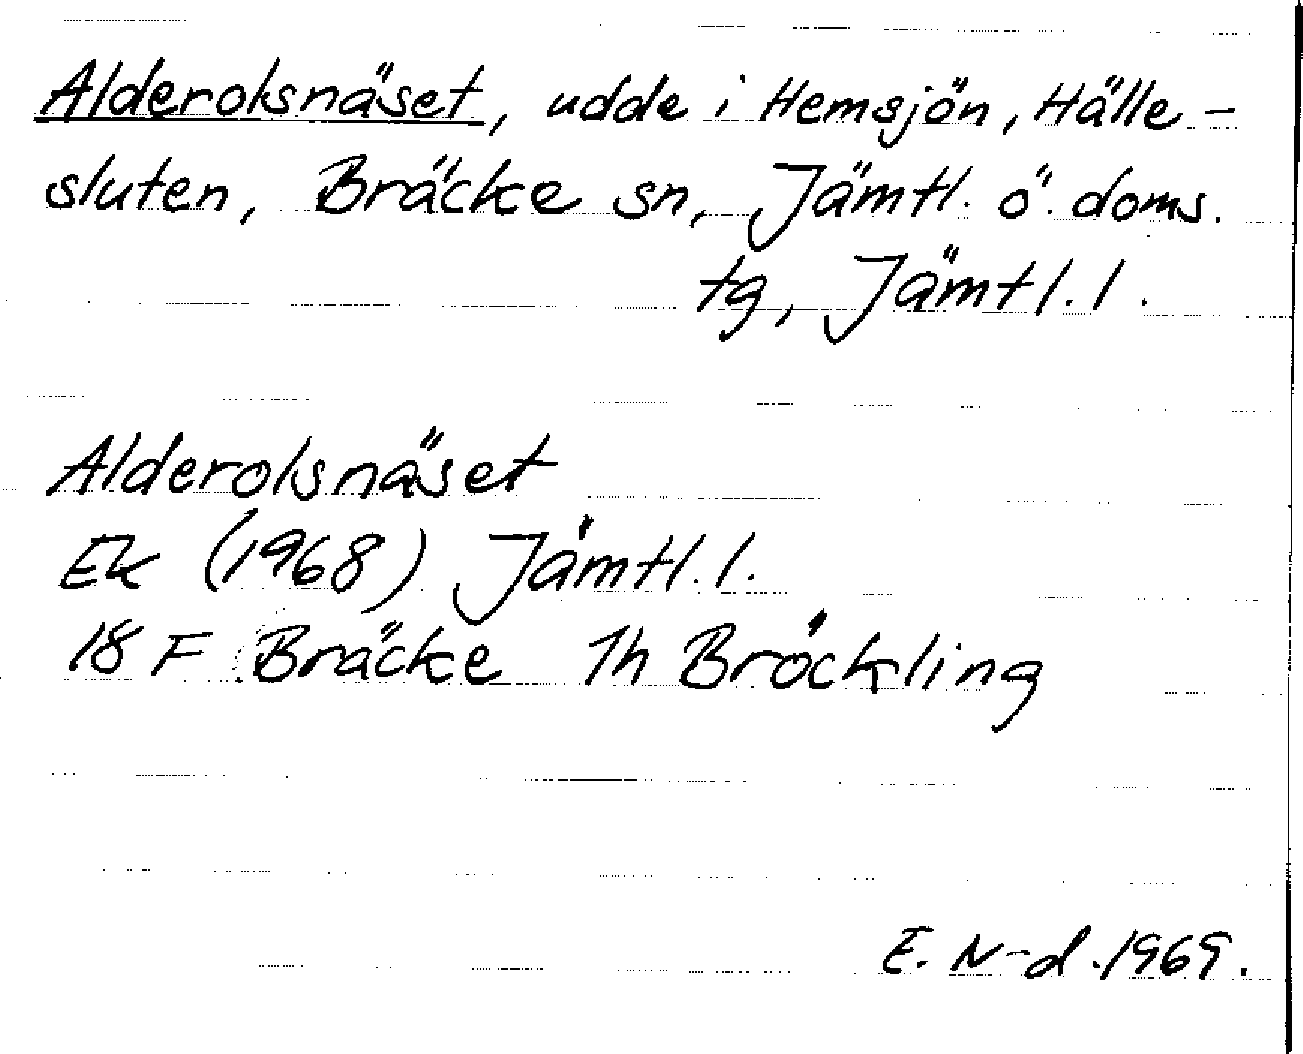 Alderolsnäset, udde i Hemsjön, Hälle-
sluten, Bräcke sn, Jämtl. ö. doms.
tg, Jämtl. l.
Alderolsnäset
Ek (1968) Jämtl. l.
18 F Bräcke 1h Bröckling
E. N-d. 1969.